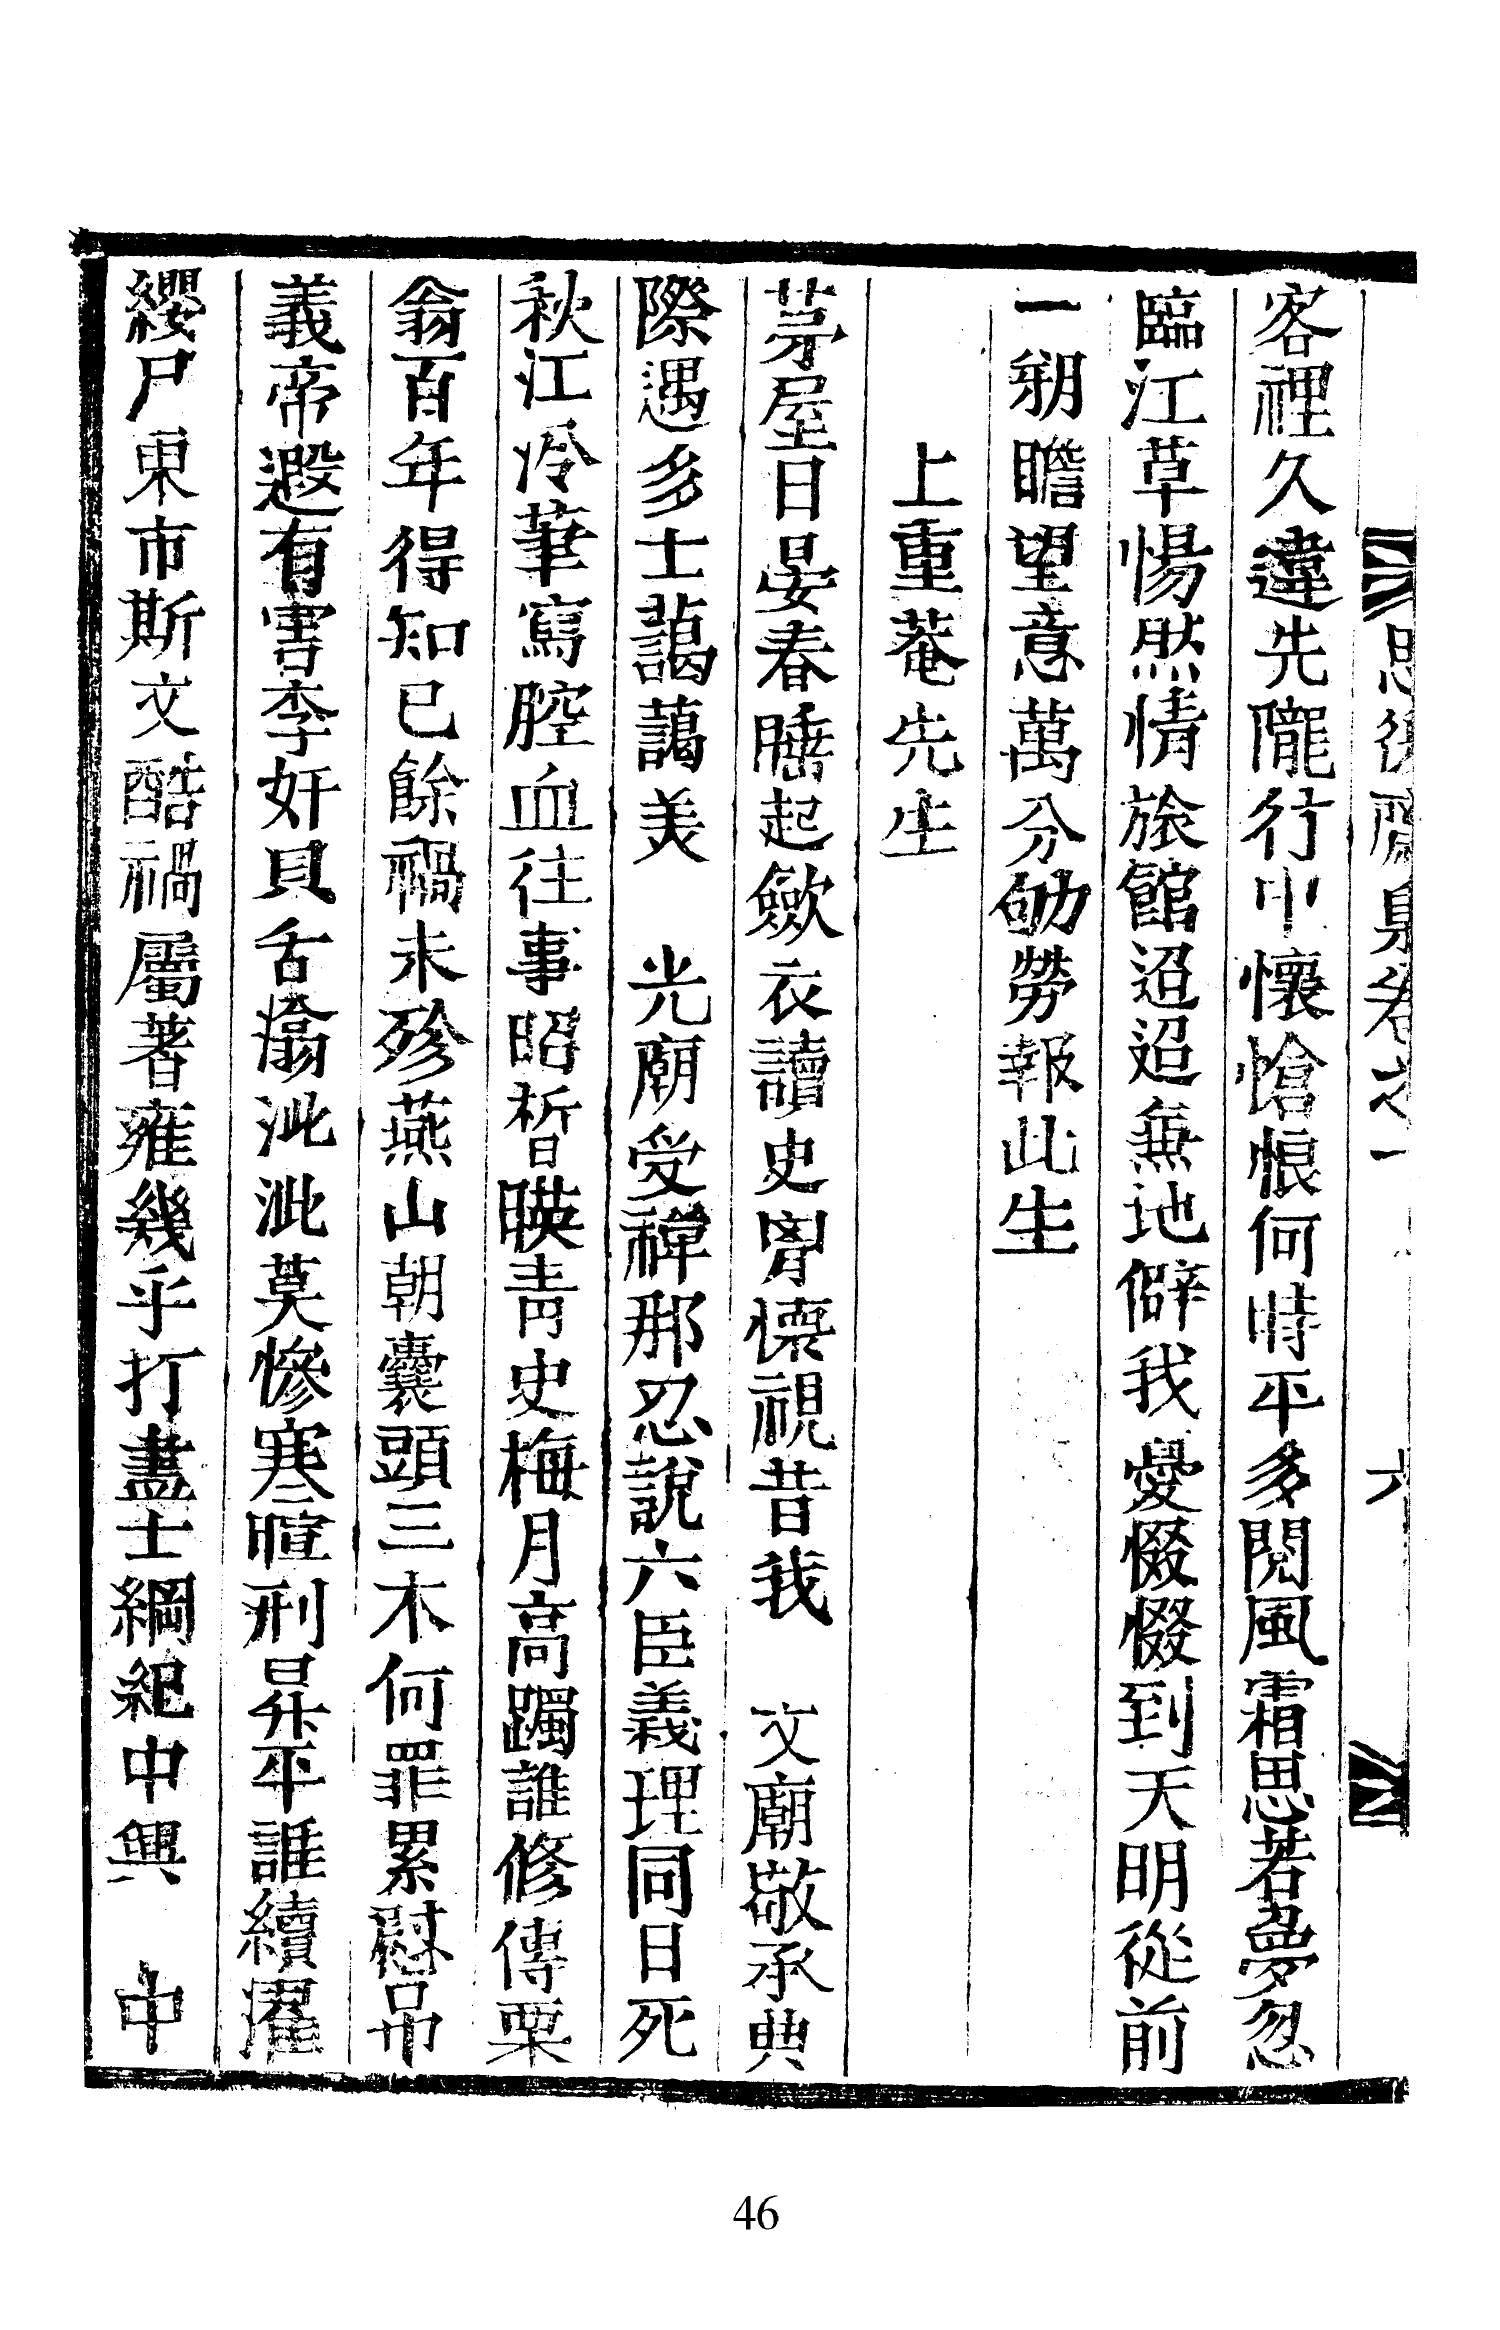 思後齋集卷之一 六
客裡久違先隴行中懷愴悢何時平多閱風霜思若夢忽
臨江草惕然情旅館迢迢無地僻我憂惙惙到天明從前
一朔瞻望意萬分劬勞報此生
上重菴先生
茅屋日晏春睡起斂衣讀史胷懷視昔我 文廟敬承典
際遇多士藹藹美 光廟受禪那忍說六臣義理同日死
秋江冷筆寫腔血往事昭晢暎靑史梅月高躅誰修傳栗
翁百年得知己餘禍未殄燕山朝囊頭三木何罪累慰吊
義帝遐有害李奸貝舌瀹泚泚莫慘寒暄刑昇平誰續濯
纓尸東市斯文酷禍屬著雍幾乎打盡士綱紀中興 中
46